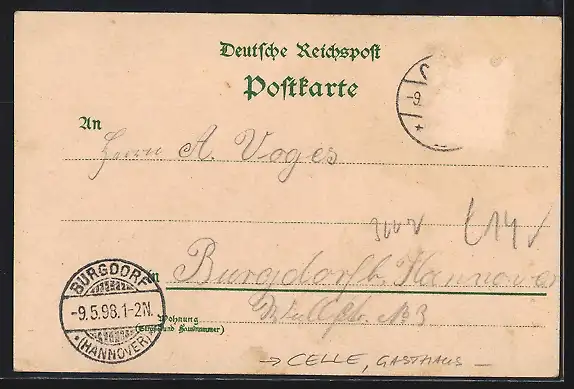 Deutsche Reichspost
Postkarte
An
Herrn A. Voges
in Burgdorf b. Hannover
Wohnung
(Straße und Hausnummer)
No 3
BURGDORF
-9.5.98.1-2N.
* (HANNOVER) *
-9.
→ CELLE, GASTHAUS –